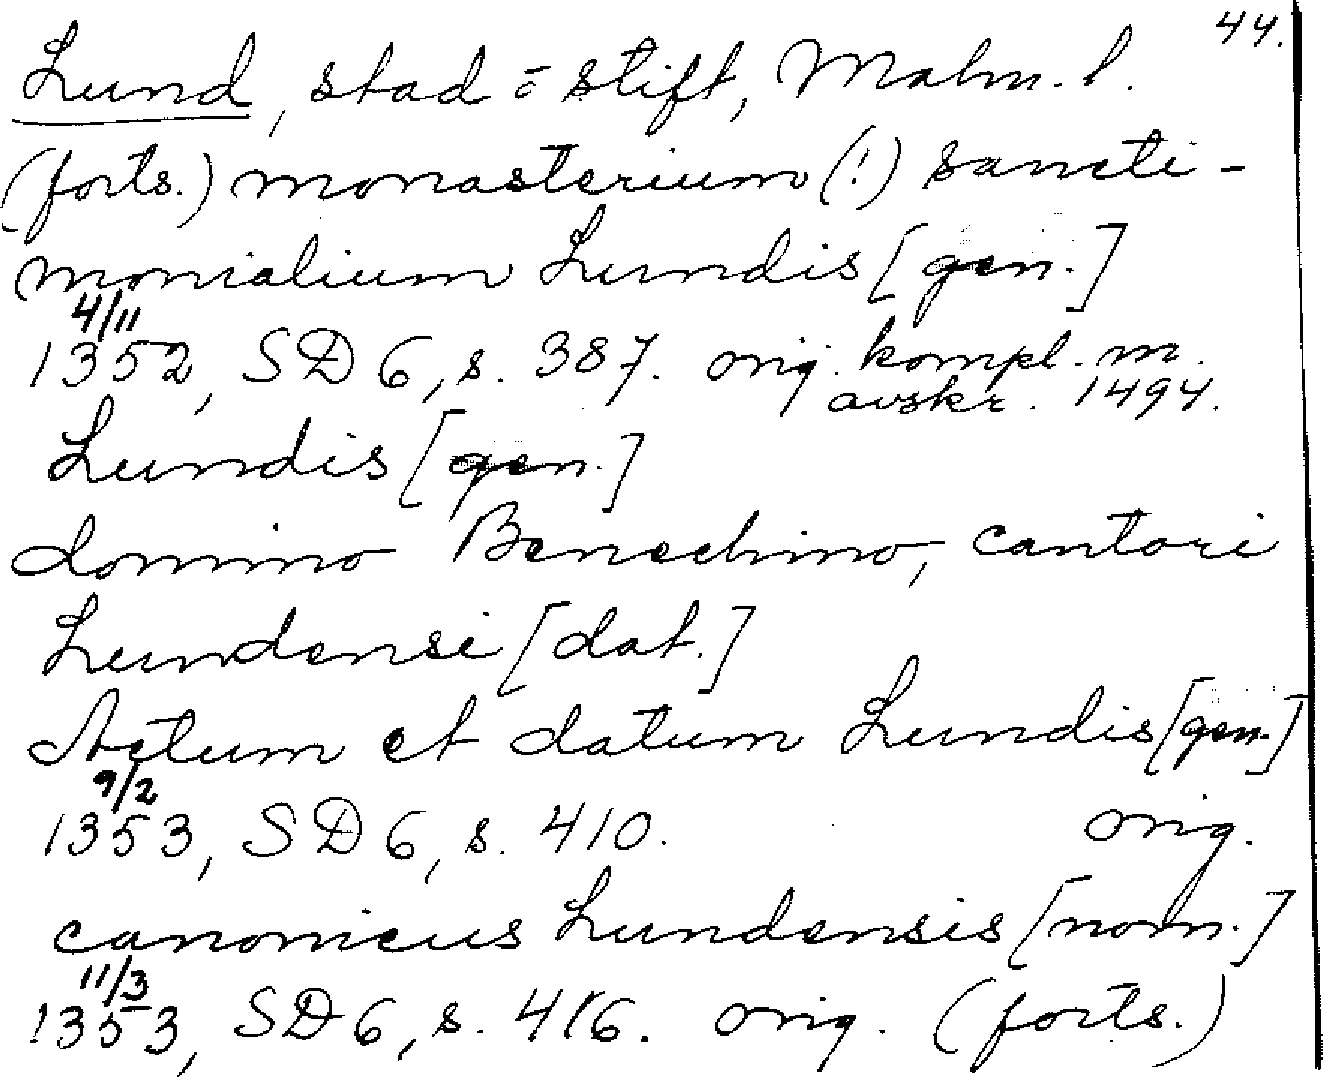 44.
Lund, stad o stift, Malm. l.
(forts.) monasterium (!) sancti-
monialium Lundis [gen.]
4/11
1352, SD 6, s. 387. orig. kompl. m.
avskr. 1494.
Lundis [gen.]
domino Benechino, cantori
Lundensi [dat.]
Actum et datum Lundis [gen.]
9/2
1353, SD 6, s. 410. orig.
canonicus Lundensis [nom.]
11/3
1353, SD 6, s. 416. orig. (forts.)